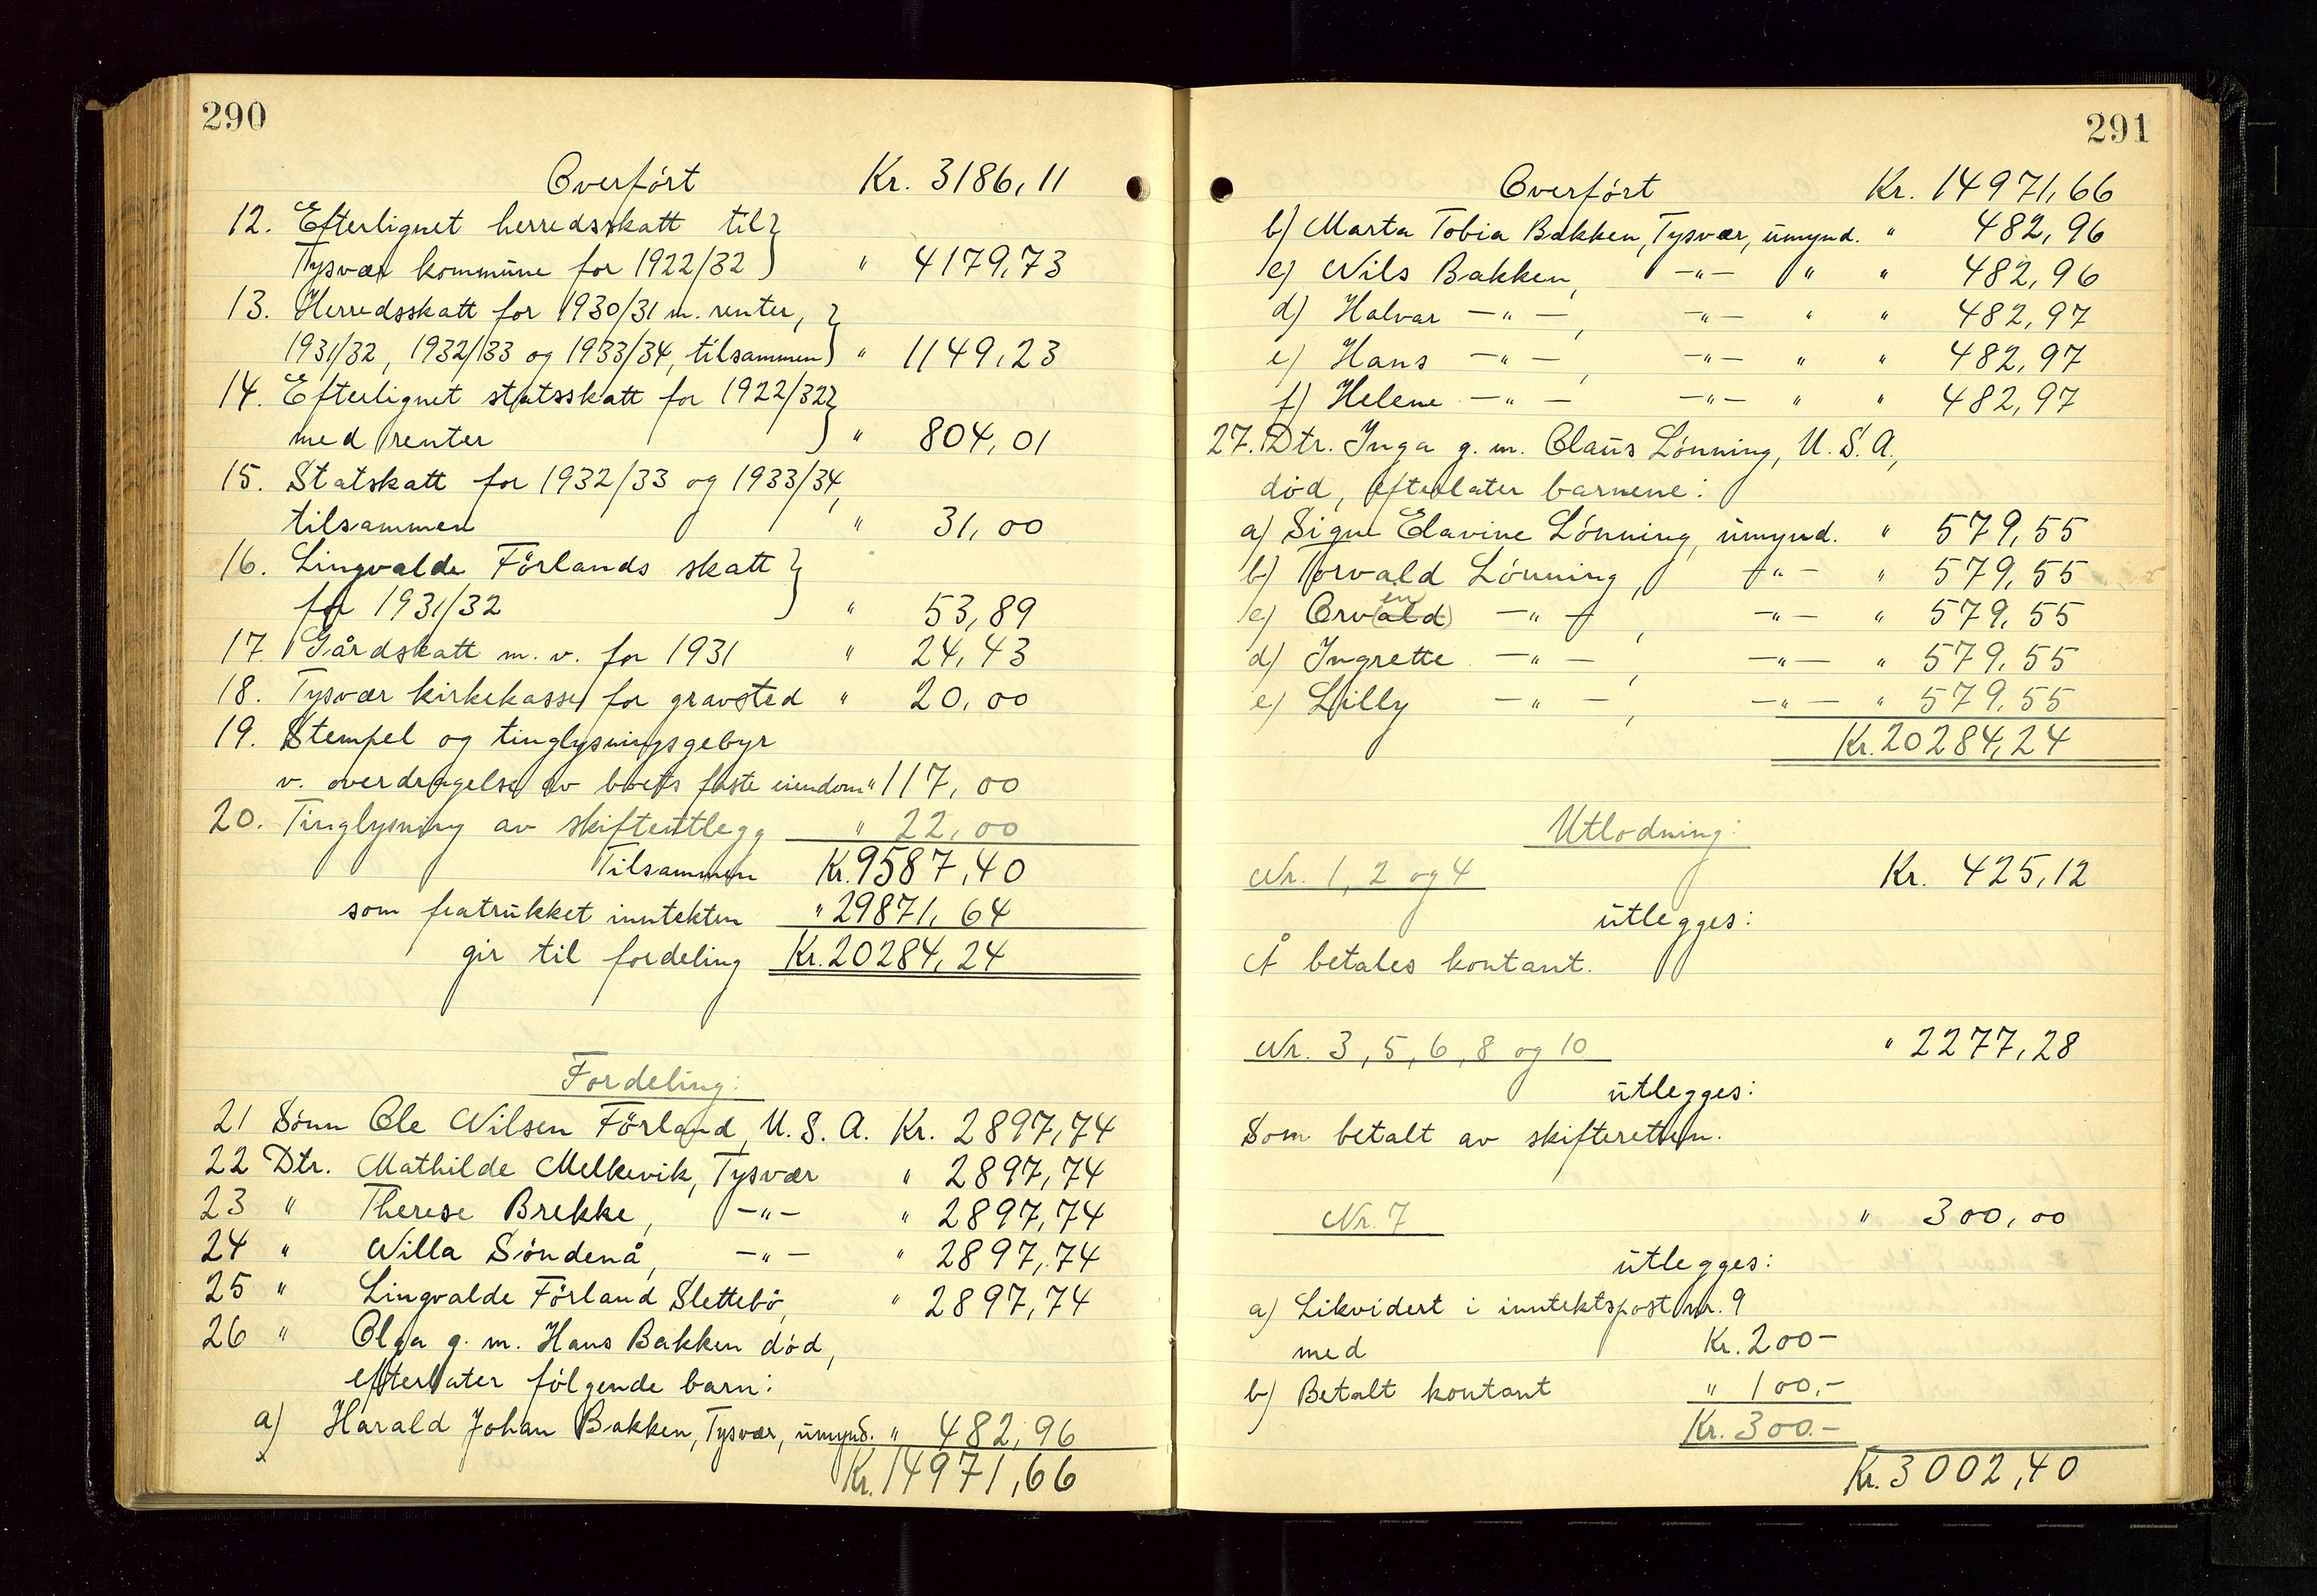 290
Overført Kr. 3186,11
12. Efterlignet herredsskatt til}
Tysvær kommune for 1922/32} " 4179,73
13. Herredsskatt for 1930/31 m. renter,}
1931/32, 1932/33 og 1933/34, tilsammen} " 1149,23
14. Efterlignet statsskatt for 1922/32}
med renter } " 804,01
15. Statskatt for 1932/33 og 1933/34,
tilsammen " 31,00
16. Lingvalde Førlands skatt}
for 1931/32 } " 53,89
17. Gårdskatt m. v. for 1931 " 24,43
18. Tysvær kirkekasse for gravsted " 20,00
19. Stempel og tinglysningsgebyr
v. overdragelse av boets faste eiendom " 117,00
20. Tinglysning av skifteutlegg " 22,00
Tilsammen Kr. 9587,40
som fratrukket inntekten " 29871,64
gir til fordeling Kr. 20284,24
Fordeling:
21 Sønn Ole Nilsen Førland, U.S.A. Kr. 2897,74
22 Dtr. Mathilde Melkevik, Tysvær " 2897,74
23 " Therese Brekke, -"- " 2897,74
24 " Willa Søndenå, -"- " 2897,74
25 " Lingvalde Førland Slettebø, " 2897,74
26 " Olga g. m. Hans Bakken død,
efterlater følgende barn:
a) Harald Johan Bakken, Tysvær, umynd. " 482,96
Kr. 14971,66
291
Overført Kr. 14971,66
b) Marta Tobia Bakken, Tysvær, umynd. " 482,96
c) Nils Bakken, -"- " " 482,96
d) Halvar -"-, -"- " " 482,97
e) Hans -"-, -"- " " 482,97
f) Helene -"- -"- " " 482,97
27. Dtr. Inga g. m. Claus Lønning, U.S.A.,
død, efterlater barnene:
a) Signe Elavine Lønning, umynd. " 579,55
b) Torvald Lønning, -"- " 579,55
c) Orv(ald) en -"-, -"- " 579,55
d) Ingrette -"-, -"- " 579,55
e) Lilly -"-, -"- " 579,55
Kr. 20284,24
Utlodning:
Nr. 1, 2 og 4 Kr. 425,12
utlegges:
Å betales kontant.
Nr. 3, 5, 6, 8 og 10 " 2277,28
utlegges:
Som betalt av skifteretten.
Nr. 7 " 300,00
utlegges:
a) Likvidert i inntektspost nr. 9
med Kr. 200-
b) Betalt kontant " 100.-
Kr. 300.-
Kr. 3002,40